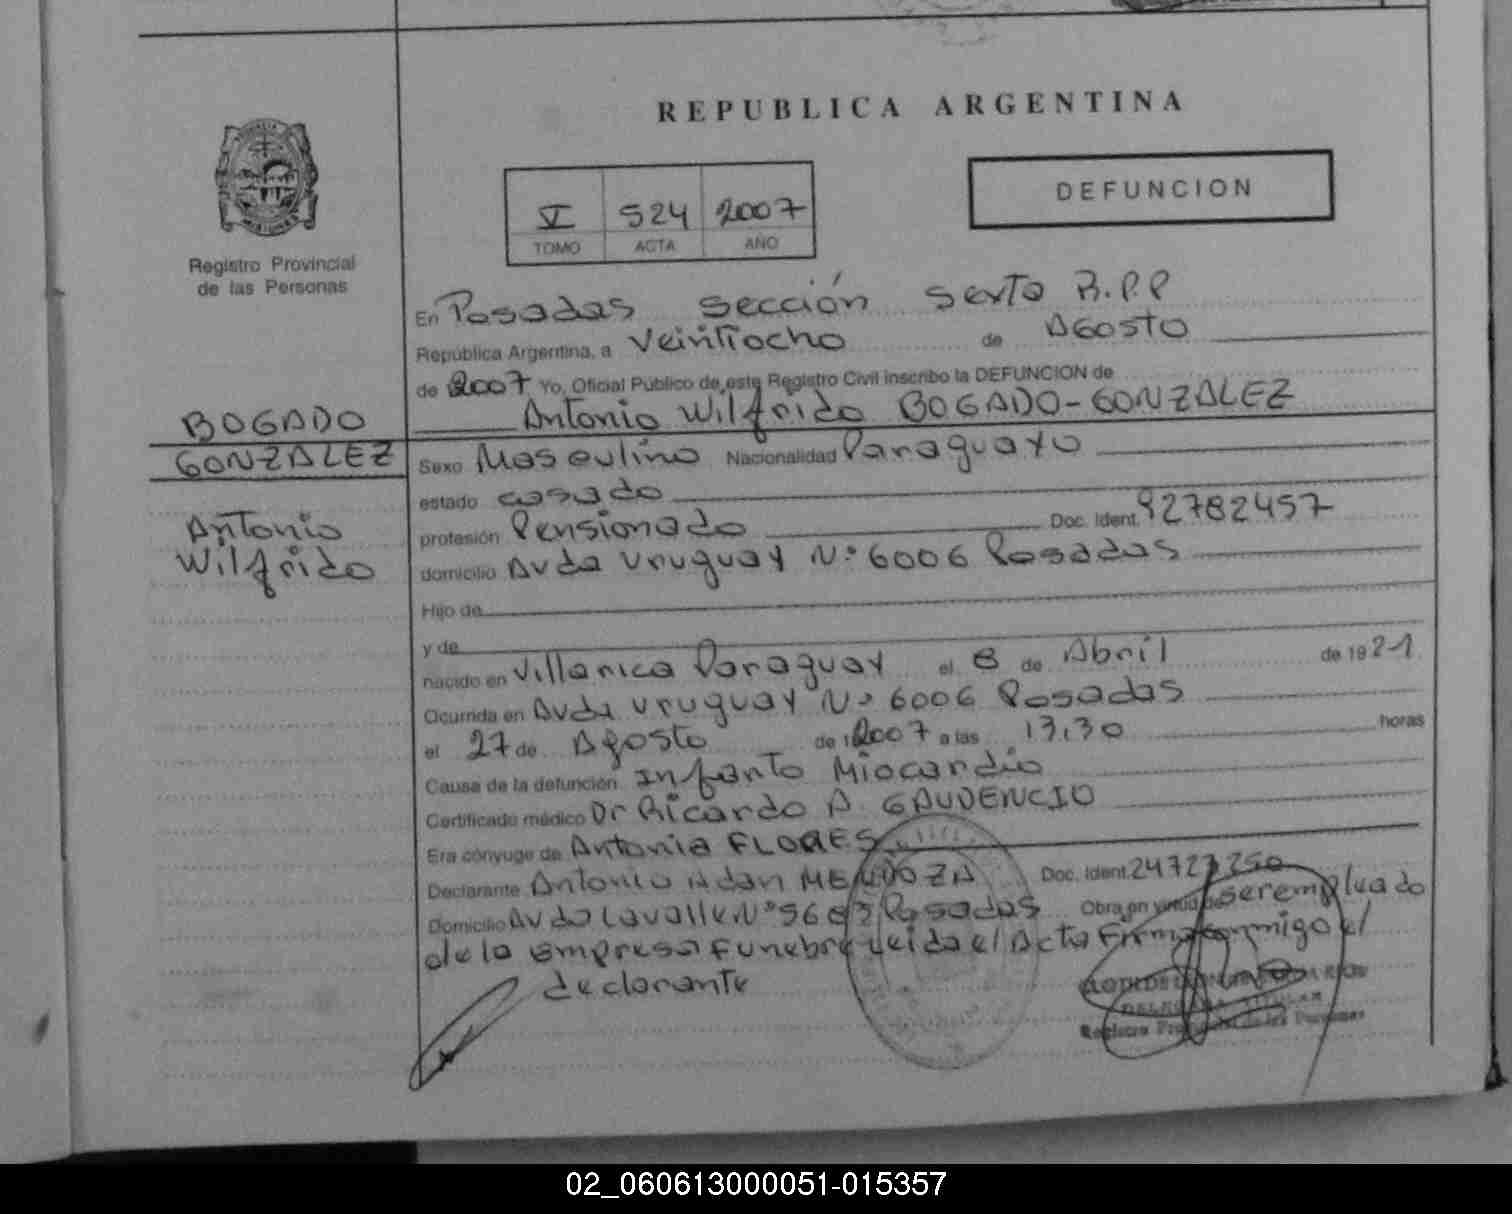 REPUBLICA ARGENTINA
DEFUNCION
V 524 2007
TOMO ACTA AÑO
Registro Provincial
de las Personas
En Posadas sección sexta R.P.P
República Argentina, a Veintiocho de Agosto
de 2007 Yo, Oficial Público de este Registro Civil inscribo la DEFUNCION de
Antonio Wilfrido BOGADO-GONZALEZ
BOGADO
GONZALEZ
Antonio
Wilfrido
Sexo Masculino Nacionalidad Paraguayo
estado casado
profesión Pensionado Doc. Ident. 92782457
domicilio Avda Uruguay N° 6006 Posadas
Hijo de
y de
nacido en Villarrica Paraguay el 8 de Abril de 1921
Ocurrida en Avda Uruguay N° 6006 Posadas
el 27 de Agosto de 2007 a las 13,30 horas
Causa de la defunción Infarto Miocardio
Certificado médico Dr Ricardo A. GAUDENCIO
Era cónyuge de Antonia FLORES
Declarante Antonio Adan MENDOZA Doc. Ident. 24723250
Domicilio Avda Lavalle N° 5683 Posadas Obra en virtud de ser empleado
de la empresa Funebre Leida el Acta Firma conmigo el
declarante
Registro Provincial de las Personas
02_060613000051-015357